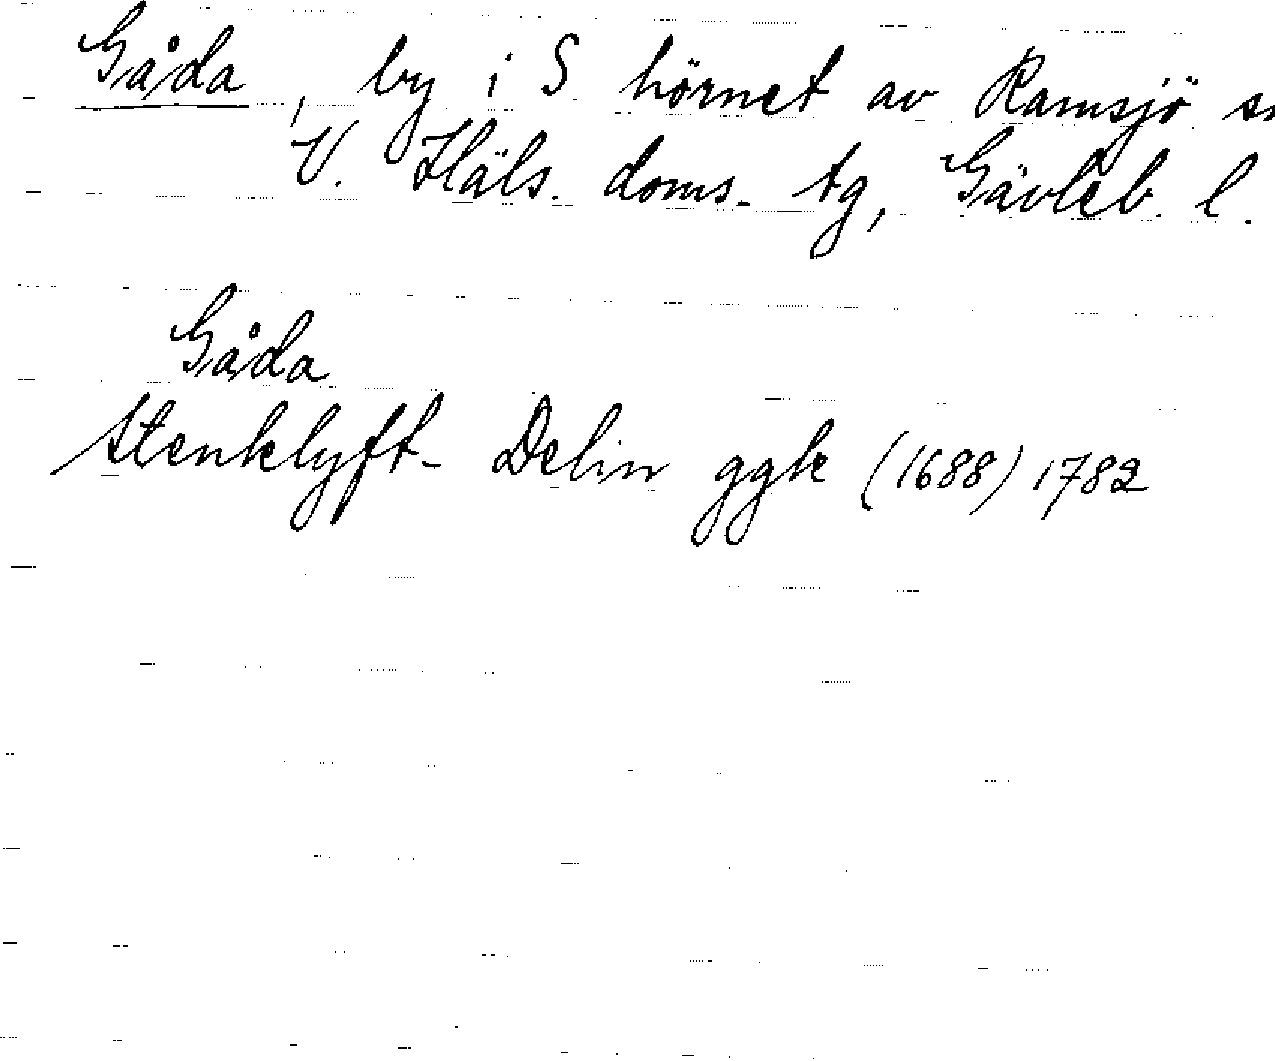 Gåda, by i S hörnet av Ramsjö sn
V. Häls. doms. tg, Gävleb. l.
Gåda
Stenklyft- Delin ggk (1688) 1782